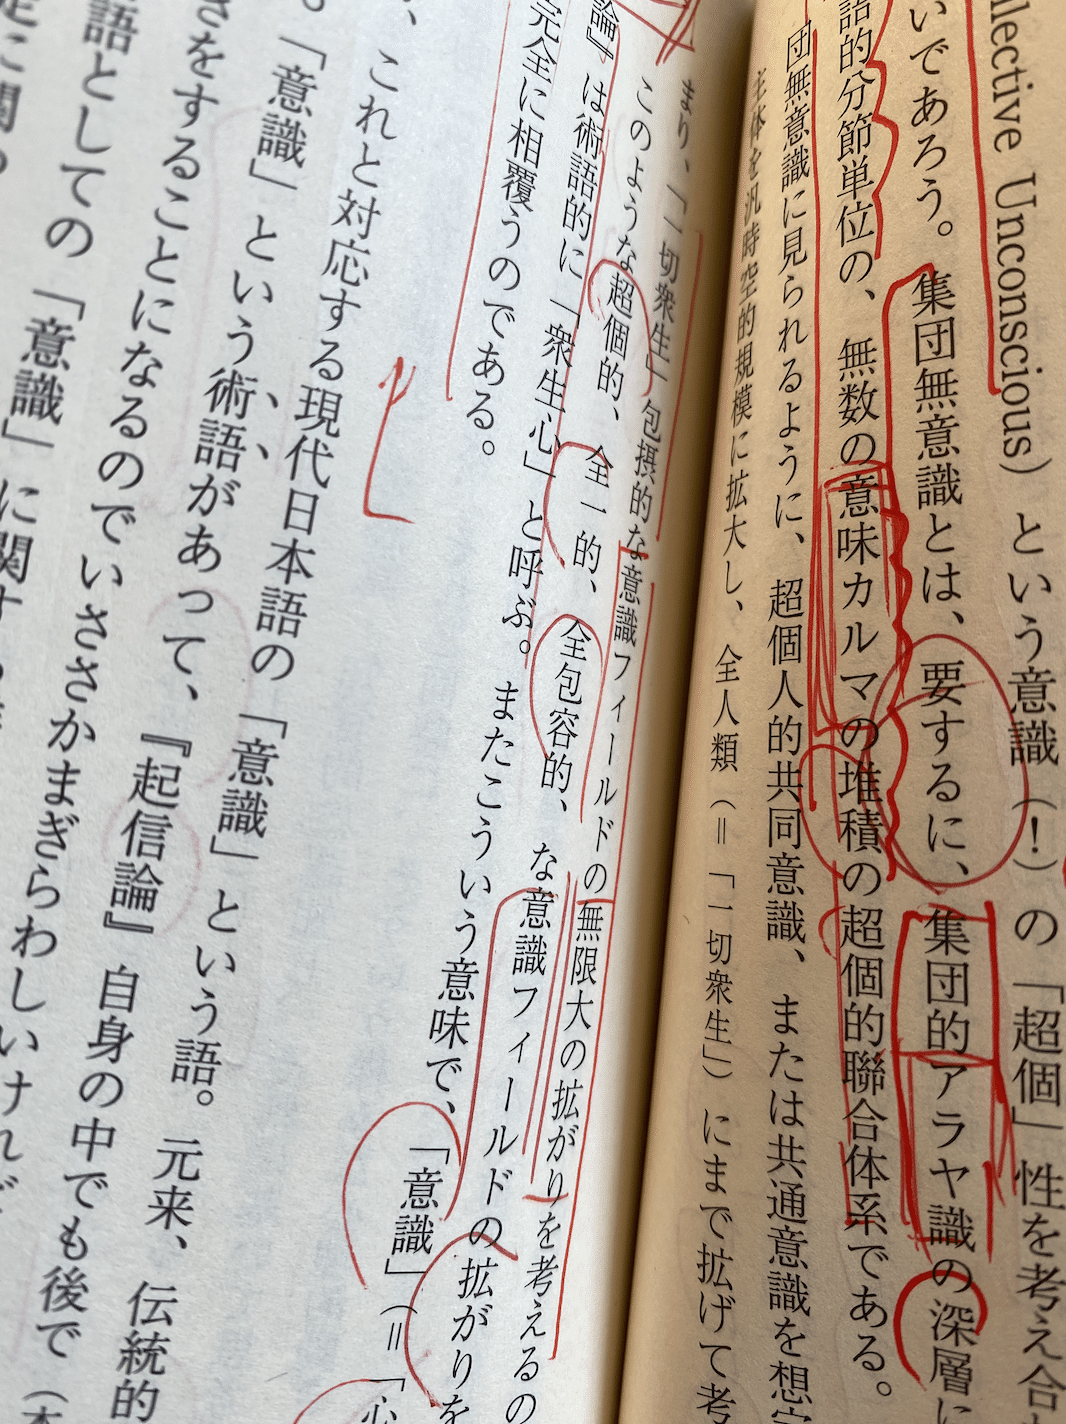 llective Unconscious) という意識(!)の「超個」性を考え合
いであろう。集団無意識とは、要するに、集団的アラヤ識の深層に
語的分節単位の、無数の意味カルマの堆積の超個的聯合体系である。
団無意識に見られるように、超個人的共同意識、または共通意識を想定
主体を汎時空的規模に拡大し、全人類(=「一切衆生」)にまで拡げて考
まり、「一切衆生」包摂的な意識フィールドの無限大の拡がりを考えるの
このような超個的、全一的、全包容的、な意識フィールドの拡がりを
論』は術語的に「衆生心」と呼ぶ。またこういう意味で、「意識」(=「心
完全に相覆うのである。
これと対応する現代日本語の「意識」という語。元来、伝統的
「意識」という術語があって、『起信論』自身の中でも後で
さをすることになるのでいささかまぎらわしいけれど
語としての「意識」に関す